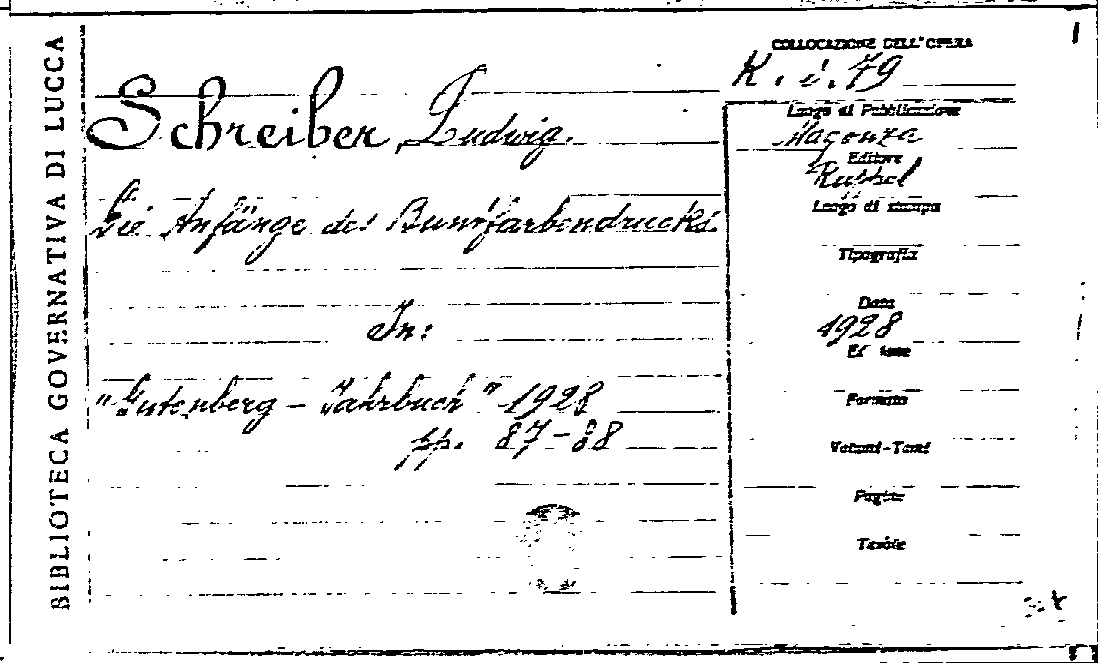 BIBLIOTECA GOVERNATIVA DI LUCCA
COLLOCAZIONE DELL'OPERA
K. i. 79
Schreiber, Ludwig.
Die Anfänge des Buntfarbendrucks.
In:
"Gutenberg - Jahrbuch" 1928
pp. 87-88
Luogo di Pubblicazione
Magonza
Editore
Ruppel
Luogo di stampa
Tipografia
Data
1928
Formato
Volumi-Tomi
Pagine
Tavole